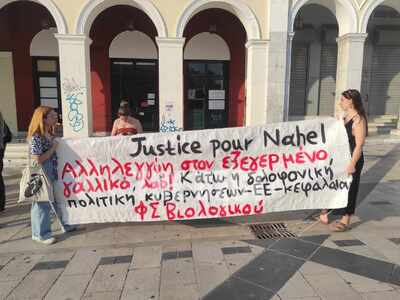 Justice pour Nahel
Αλληλεγγύη στον εξεγερμένο
γαλλικό λαό! Κάτω η δολοφονική
πολιτική κυβερνήσεων-ΕΕ-κεφαλαίου
ΦΣ Βιολογικού